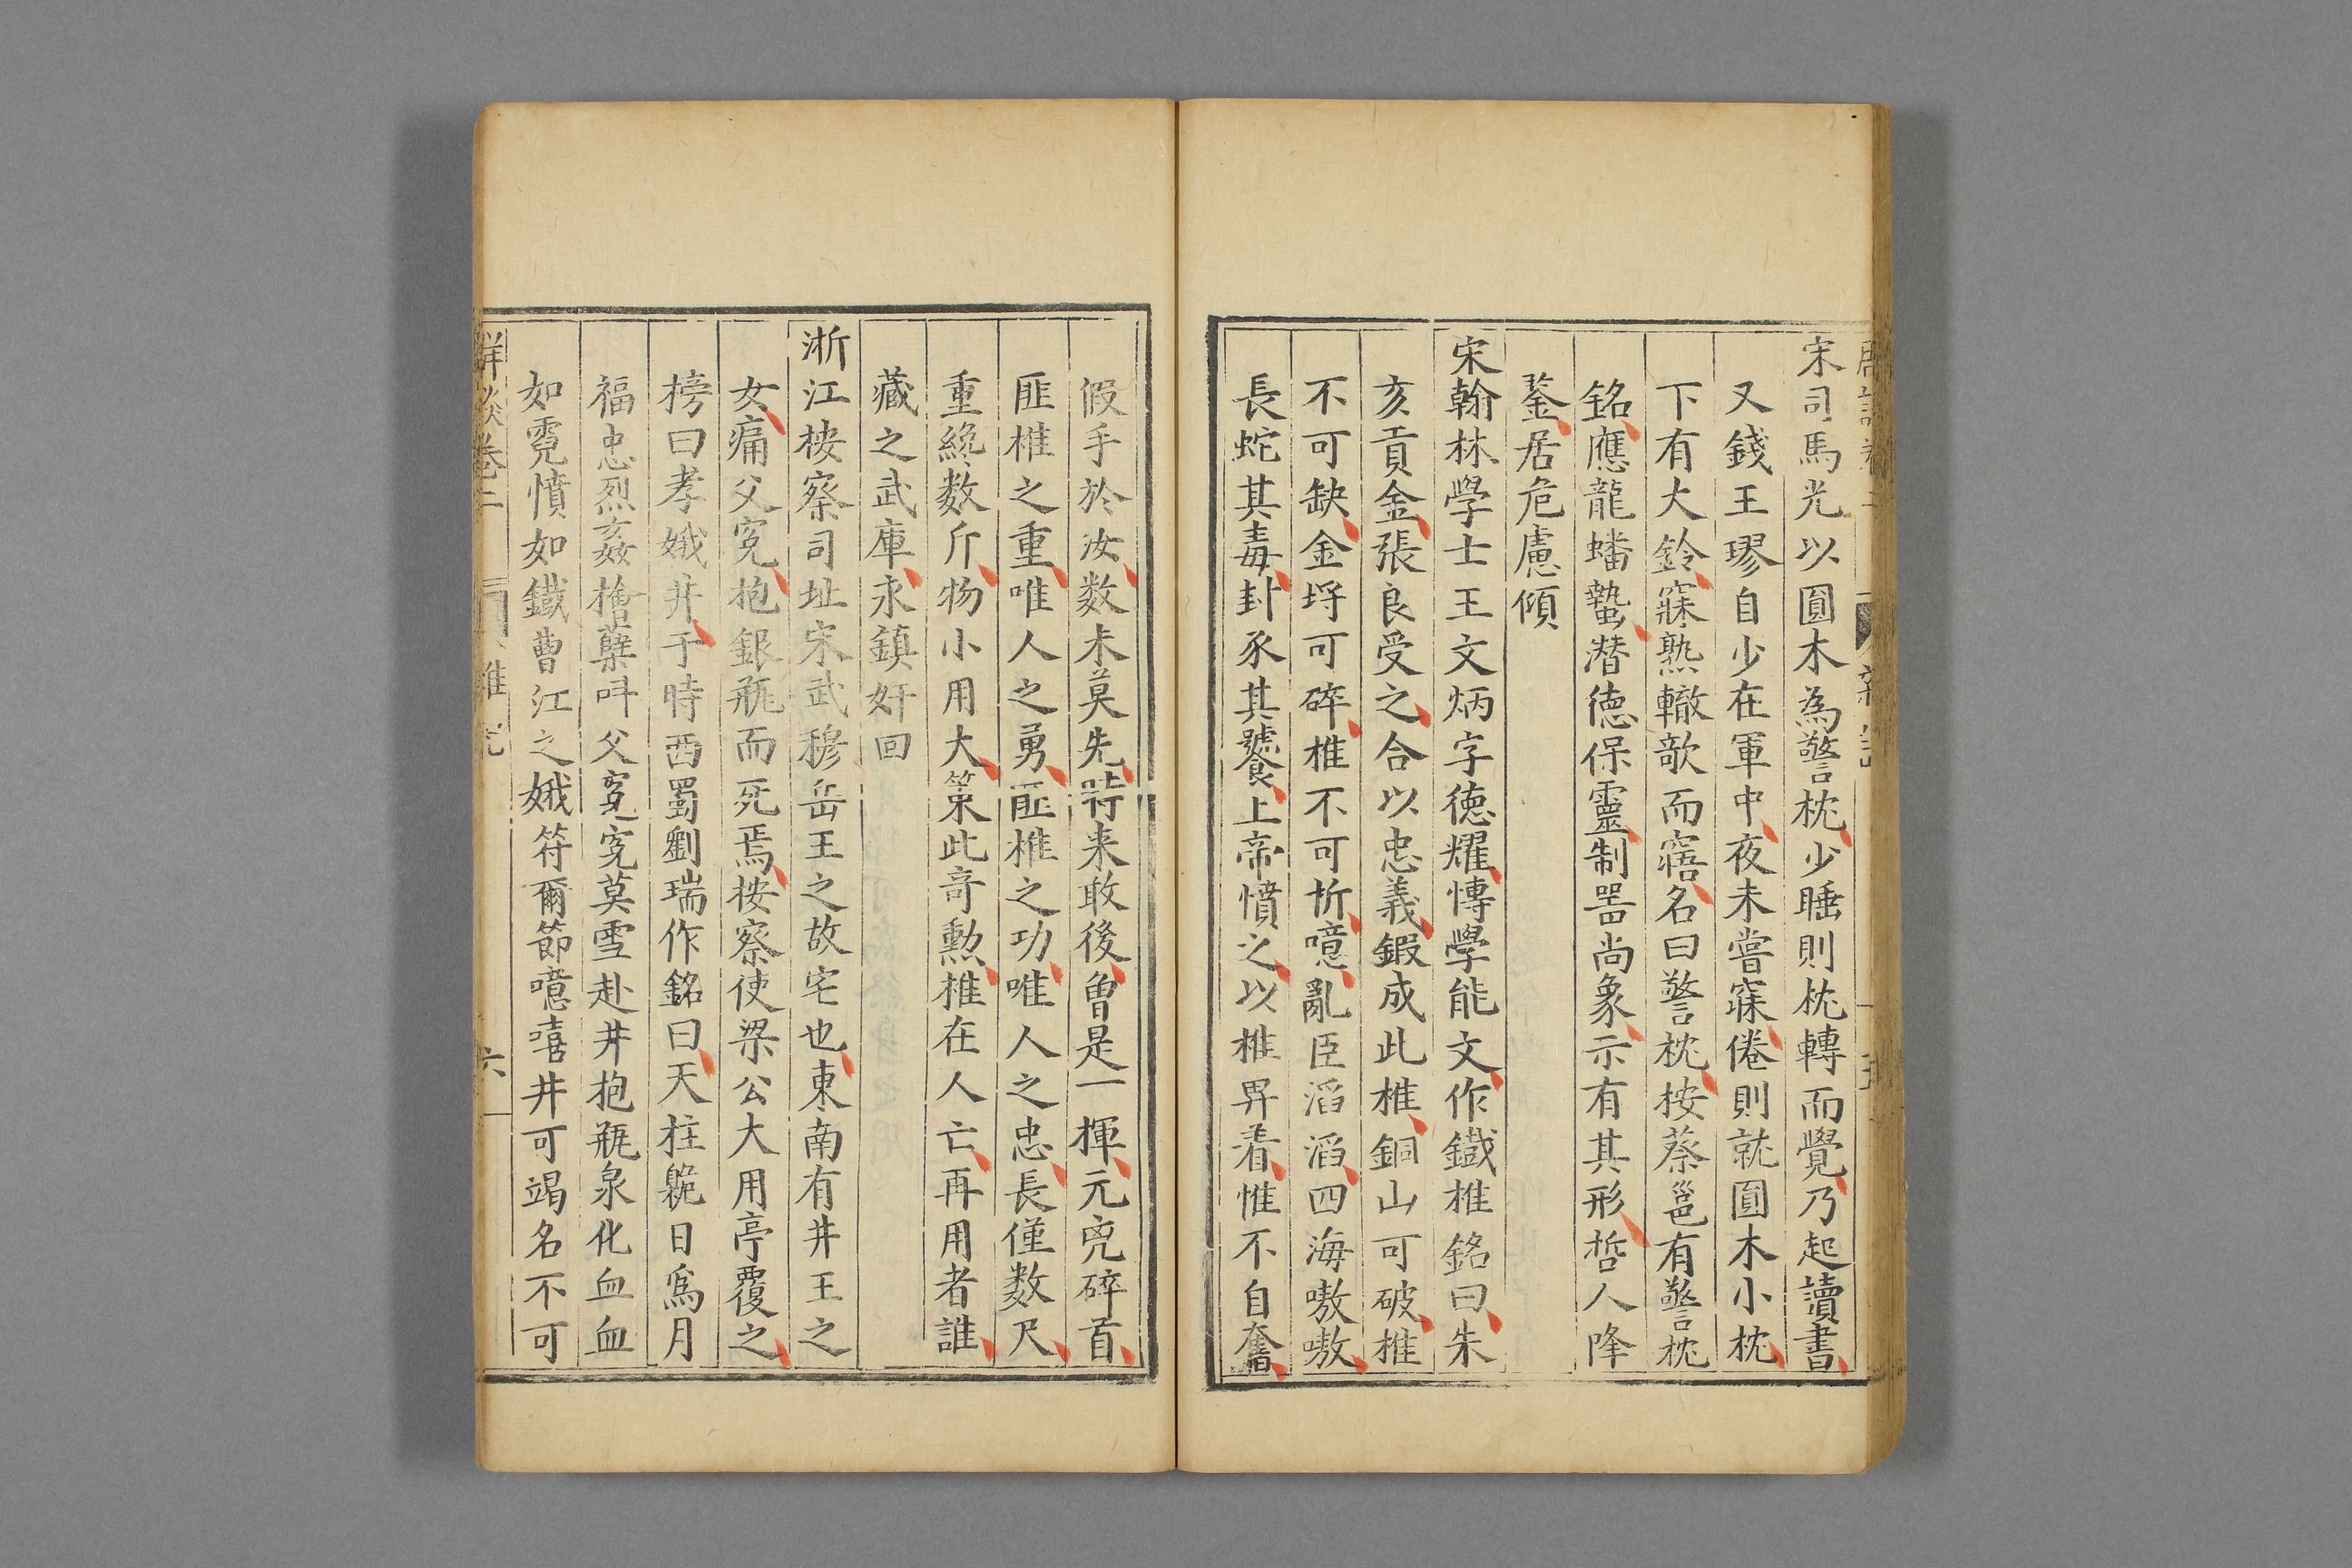 宋司馬光以圓木為警枕少睡則枕轉而覺乃起讀書
又錢王璆自少在軍中夜未嘗寐倦則就圓木小枕
下有大鈴寐熟轍欹而寤名曰警枕按蔡邕有警枕
銘應龍蟠蟄潜德保靈制噐尚象示有其形哲人降
鍳居危慮傾
宋翰林學士王文炳字德耀慱學能文作鐵椎銘曰朱
亥貢金張良受之合以忠義鍜成此椎銅山可破椎
不可缺金埒可碎椎不可折噫亂臣滔滔四海嗷嗷
長蛇其毒封豕其饕上帝憤之以椎畀着惟不自奮
假手於汝数未莫先時来敢後曽是一揮元兇碎首
匪椎之重唯人之勇匪椎之功唯人之忠長僅数尺
重纔数斤物小用大策此竒勲椎在人亡再用者誰
藏之武庫永鎮奸回
浙江按察司址宋武穆岳王之故宅也東南有井王之
女痛父寃抱銀瓶而死焉按察使梁公大用亭覆之
榜曰孝娥井于時西蜀劉瑞作銘曰天柱䠆日為月
福忠烈姦檜蘖叫父寃寃莫雪赴井抱瓶泉化血血
如霓憤如鐵曹江之娥符爾節噫嘻井可竭名不可
詳談卷二 六